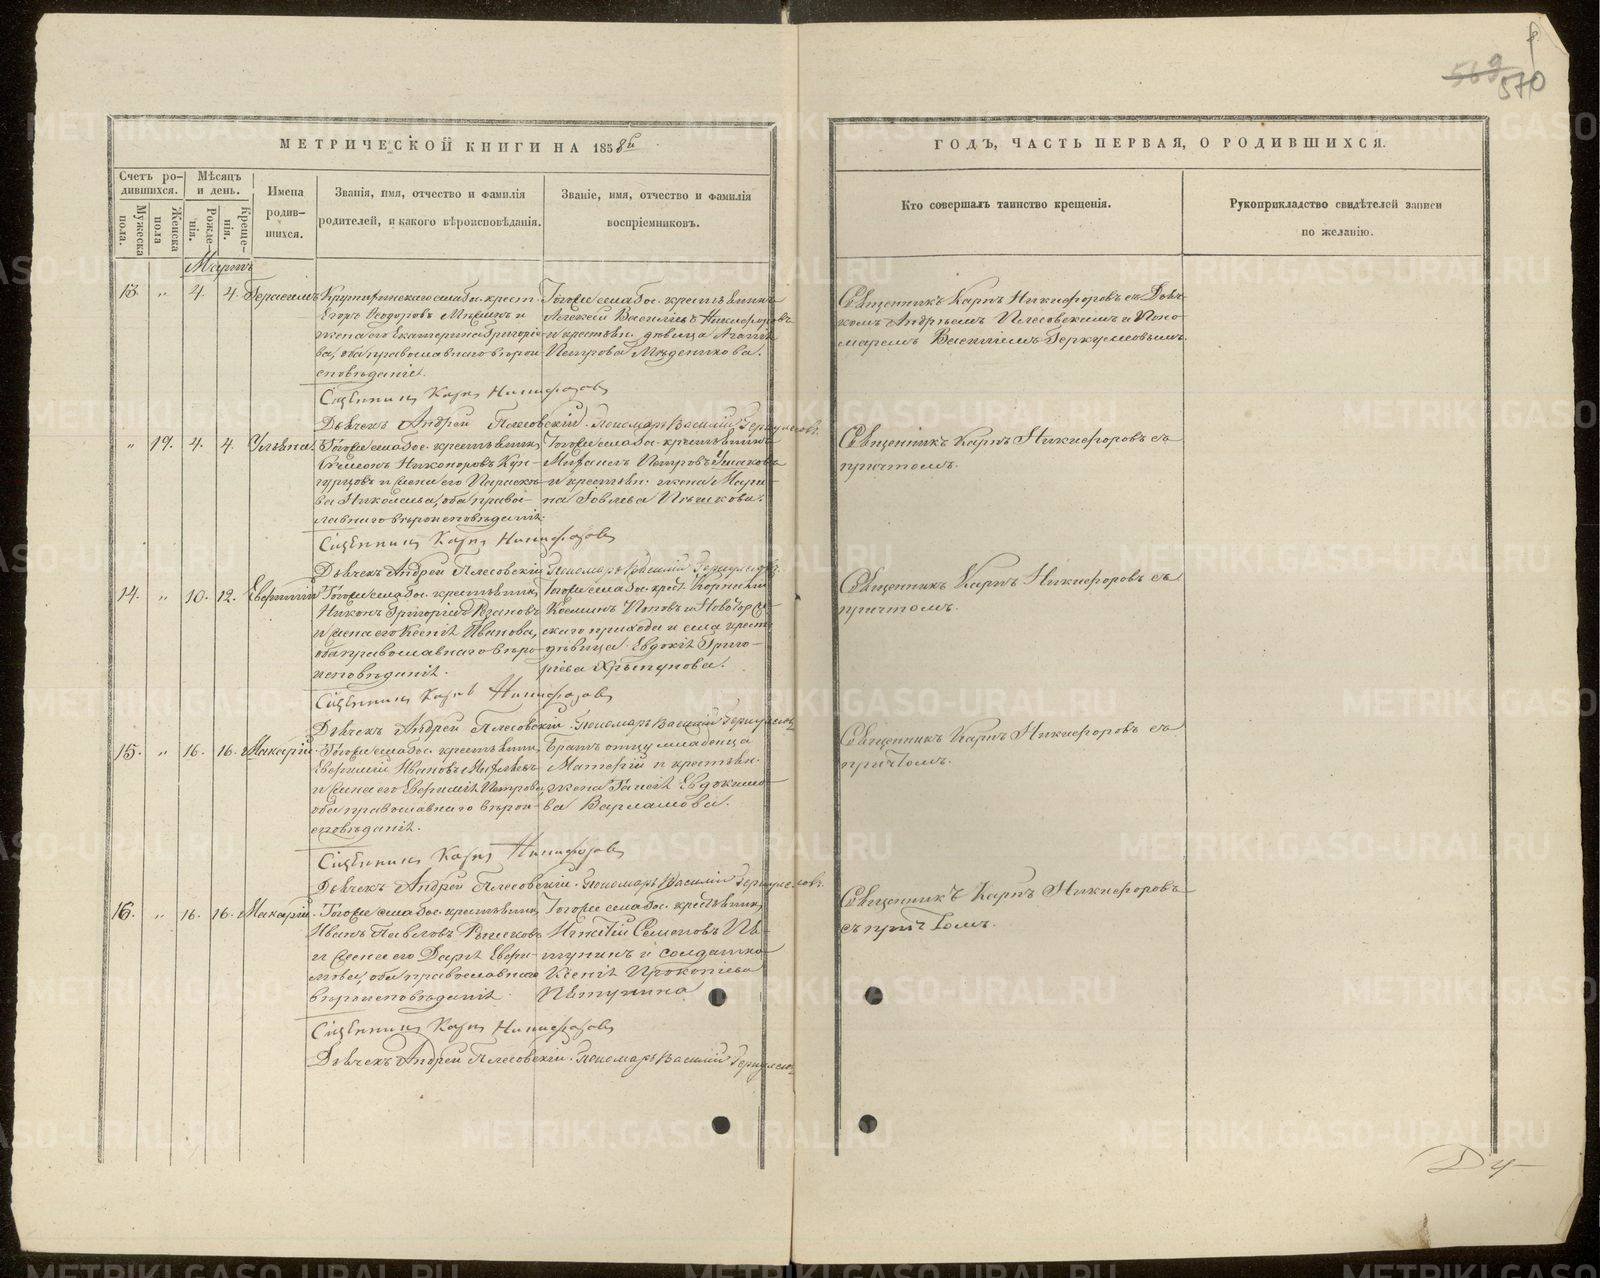 569
570
МЕТРИЧЕСКОЙ КНИГИ НА 1858й
ГОДЪ, ЧАСТЬ ПЕРВАЯ, О РОДИВШИХСЯ.
Счетъ родившихся.
Мужеска пола.
Женска пола
Мѣсяцъ и день.
Рожденія.
Крещенія.
Имена родив-
шихся.
Званія, имя, отчество и фамилія
родителей, и какого вѣроисповѣданія.
Званіе, имя, отчество и фамилія
воспріемниковъ.
Кто совершалъ таинство крещенія.
Рукоприкладство свидѣтелей записи
по желанію.
Мартъ
13. „ 4. 4. Герасимъ
села Бос. крест.
Егоръ Ѳеодоровъ и
жена его Екатерина Григоріе-
ва, оба православнаго вѣрои-
сповѣданіе.
Тогоже села Бос. крестьянинъ
Алексѣй Васильевъ Никифоровъ
и крестьян. дѣвица Агаѳія
Петрова
Священникъ Карпъ Никифоровъ съ Дьяч-
комъ Андреемъ Плесовскимъ и Поно-
маремъ Василіемъ Геркулесовымъ.
Священникъ Карпъ Никифоровъ
Дьячекъ Андрей Плесовскій. Пономарь Василій Геркулесовъ.
„ 19. 4. 4. Ульяна.
Тогоже села Бос. крестьянинъ
Симеонъ Никоноровъ Кун-
гурцовъ и жена его Параскѣ-
ва Николаева, оба право-
славнаго вѣроисповѣданія.
Тогоже села Бос. крестьянинъ
Михаилъ Петровъ Ушаковъ
и крестьян. жена Мари-
на Іовлева
Священникъ Карпъ Никифоровъ съ
причтомъ.
Священникъ Карпъ Никифоровъ
Дьячекъ Андрей Плесовскій Пономарь Василій Геркулесовъ
14. „ 10. 12. Евфимій
Тогоже села Бос. крестьянинъ
Никонъ Григорьевъ
и жена его Ксенія Иванова,
оба православнаго вѣро-
исповѣданія.
Тогоже села Бос. крест. Корнилій
Косминъ Поповъ и
скаго прихода и села крест.
дѣвица Евдокія Григо-
рьева
Священникъ Карпъ Никифоровъ съ
причтомъ.
Священникъ Карпъ Никифоровъ
Дьячекъ Андрей Плесовскій. Пономарь Василій Геркулесовъ
15. „ 16. 16. Макарій.
Тогоже села Бос. крестьянин.
Евфимій Ивановъ
и жена его Евфимія Петрова,
оба православнаго вѣрои-
сповѣданія.
Братъ отцу младенца
и крестьян.
жена Евдокимо-
ва Варламова.
Священникъ Карпъ Никифоровъ съ
причтомъ.
Священникъ Карпъ Никифоровъ
Дьячекъ Андрей Плесовскій. Пономарь Василій Геркулесовъ.
16. „ 16. 16. Макарій.
Тогоже села Бос. крестьянин.
Иванъ Павловъ
и жена его Дарія Евфи-
мова, оба православнаго
вѣроисповѣданія.
Тогоже села Бос. крестьянин.
Игнатій Семеновъ Пѣ-
тунинъ и солдатка
Ксенія Прокопіева
Пѣтунина
Священникъ Карпъ Никифоровъ
съ причтомъ.
Священникъ Карпъ Никифоровъ
Дьячекъ Андрей Плесовскій. Пономарь Василій Геркулесовъ
METRIKI.GASO-URAL.RU